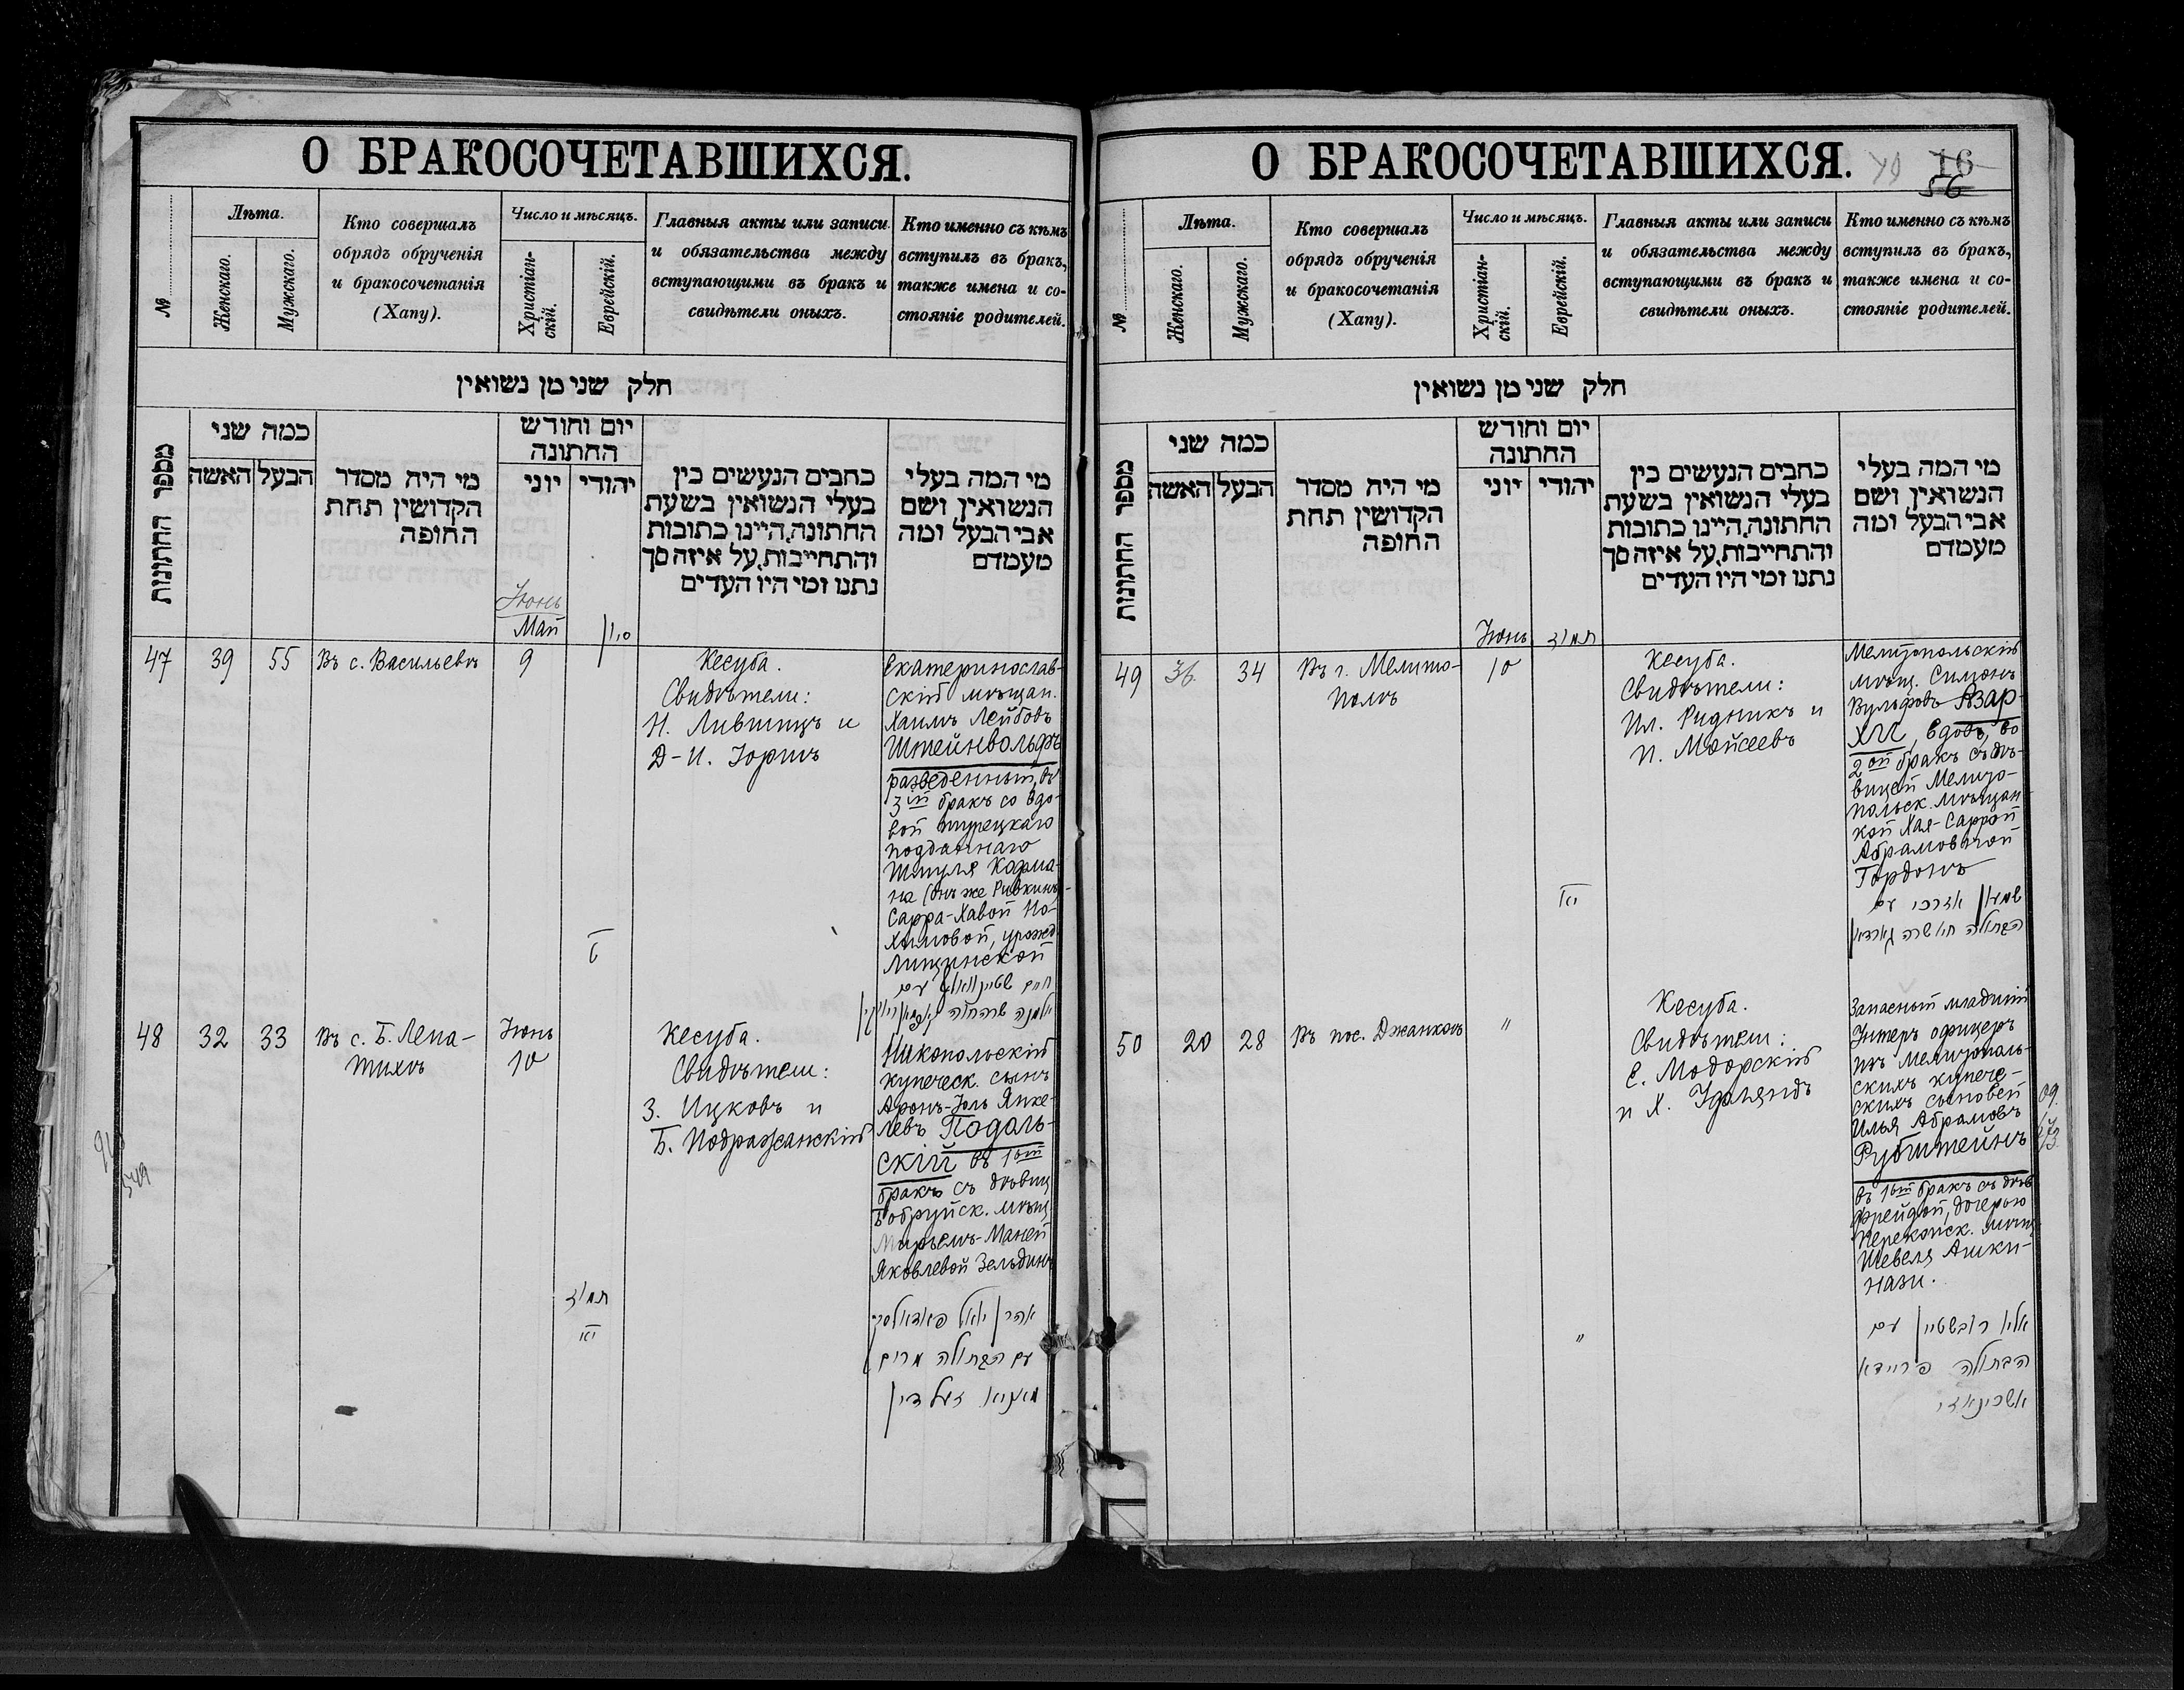 О БРАКОСОЧЕТАВШИХСЯ.
№
Лѣта.
Женскаго.
Мужскаго.
Кто совершалъ
обрядъ обрученія
и бракосочетанія
(Хапу).
Число и мѣсяцъ.
Христіан-
скій.
Еврейскій.
Главныя акты или записи
и обязательства между
вступающими въ бракъ и
свидѣтели оныхъ.
Кто именно съ кѣмъ
вступилъ въ бракъ,
также имена и со-
стояніе родителей.
חלק שני מן נשואין
מספר החתונות
כמה שני
האשה
הבעל
מי היה מסדר
הקדושין תחת
החופה
יום וחודש
החתונה
יוני
יהודי
כתבים הנעשים בין
בעלי הנשואין בשעת
החתונה, היינו כתובות
והתחייבות, על איזה סך
נתנו ומי היו העדים
מי המה בעלי
הנשואין ושם
אבי הבעל ומה
מעמדם
Іюнь
Май
סיון
47
39
55
Въ с. Васильевкѣ
9
ט
Кесуба.
Свидѣтели:
Н. Лившицъ и
Д-И. Іоришъ
Екатеринослав-
скій мѣщан.
Хаимъ Лейбовъ
Штейнвольфъ
разведенный, въ
3ій бракъ со вдо-
вой турецкаго
подданнаго
Шмуля Карма-
на (онъ же Ривкинъ)
Сарра-Хавой Но-
химовой, урожд.
Лищинской
חיים שטיינוואלף עם
48
32
33
Въ с. Б. Лепа-
тихѣ
Іюнь
10
תמוז
יא
Кесуба.
Свидѣтели:
З. Ицковъ и
Б. Подражанскій
Никопольскій
купеческ. сынъ
Аронъ-Іоль Янке-
левъ Подоль-
скій въ 1ый
бракъ съ дѣвиц
Бобруйск. мѣщ
Мирьемъ-Маней
Яковлевой Зельдинъ
אהרן יואל פאדאלסקי
עם הבתולה מרים
מאניא זעלדין
О БРАКОСОЧЕТАВШИХСЯ.
16
56
№
Лѣта.
Женскаго.
Мужскаго.
Кто совершалъ
обрядъ обрученія
и бракосочетанія
(Хапу).
Число и мѣсяцъ.
Христіан-
скій.
Еврейскій.
Главныя акты или записи
и обязательства между
вступающими въ бракъ и
свидѣтели оныхъ.
Кто именно съ кѣмъ
вступилъ въ бракъ,
также имена и со-
стояніе родителей.
חלק שני מן נשואין
מספר החתונות
כמה שני
האשה
הבעל
מי היה מסדר
הקדושין תחת
החופה
יום וחודש
החתונה
יוני
יהודי
כתבים הנעשים בין
בעלי הנשואין בשעת
החתונה, היינו כתובות
והתחייבות, על איזה סך
נתנו ומי היו העדים
מי המה בעלי
הנשואין ושם
אבי הבעל ומה
מעמדם
Іюнь
תמוז
49
36
34
Въ г. Мелито-
полѣ
10
יא
Кесуба.
Свидѣтели:
Ил. Ридникъ и
И. Мойсеевъ
Мелитопольскій
мѣщ. Симонъ
Вульфовъ Азар-
хи, вдовъ, во
2ой бракъ съ дѣ-
вицей Мелито-
польск. мѣщан-
кой Хая-Саррой
Абрамовичой
Гордонъ
שמעון אזרכי עם
הבתולה חיה שרה גארדאן
50
20
28
Въ пос. Джанкой
"
"
Кесуба.
Свидѣтели:
Е. Модорскій
и Х. Урляндъ
Запасный младшій
Унтеръ офицеръ
изъ Мелитополь-
скихъ купече-
скихъ сыновей
Илья Абрамовъ
Рубштейнъ
въ 1ый бракъ съ дѣв
Фрейдой, дочерью
Перекопск. мѣщ
Шевеля Ашки-
нази.
אליו רובשטיין עם
הבתולה פריידא
אשכינאזי